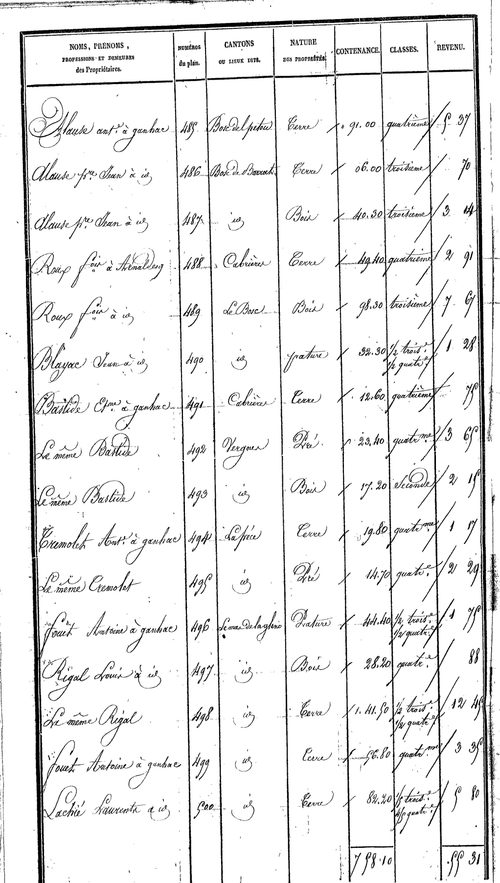 NOMS, PRÉNOMS, PROFESSIONS ET DEMEURES des Propriétaires. NUMÉROS du plan. CANTONS OU LIEUX DITS. NATURE DES PROPRIÉTÉS. CONTENANCE. CLASSES. REVENU.
Alause ant.e à ganhac 485 Bosc del peteu Terre 91.00 quatrième 5 37
Alause p.re Jean à id 486 Bosc de Barrat Terre 06.00 troisième 70
Alause p.re Jean à id 487 id Bois 40.30 troisième 3 14
Roux fois à 488 Cabrière Terre 49.40 quatrième 2 91
Roux fois à id 489 Le Bosc Bois 98.30 troisième 7 67
Blayac Jean à id 490 id pature 32.30 1/2 trois.e 1/2 quatr.e 1 28
Bastide Et.ne à ganhac 491 Cabrière Terre 12.60 quatrième 75
Le même Bastide 492 Vergnes Pré 23.40 quatr.me 3 65
Le même Bastide 493 id Bois 17.20 seconde 2 15
Tremolet Ant.e à ganhac 494 La pèce Terre 19.80 quatr.me 1 17
Le même Tremolet 495 id Pré 14.70 quatr.e 2 29
fouet Antoine à ganhac 496 Pature 44.40 1/2 trois.e 1/2 quatr.e 1 75
Rigal Louis à id 497 id Bois 28.20 quatr.e 88
Le même Rigal 498 id Terre 1.41.50 1/2 trois.e 1/2 quatr.e 12 45
fouet Antoine à ganhac 499 id Terre 56.80 quatr.me 3 35
Lachié Laurent a id 500 id Terre 82.20 trois.e quatr.e 5 80
7 58.10 55 31